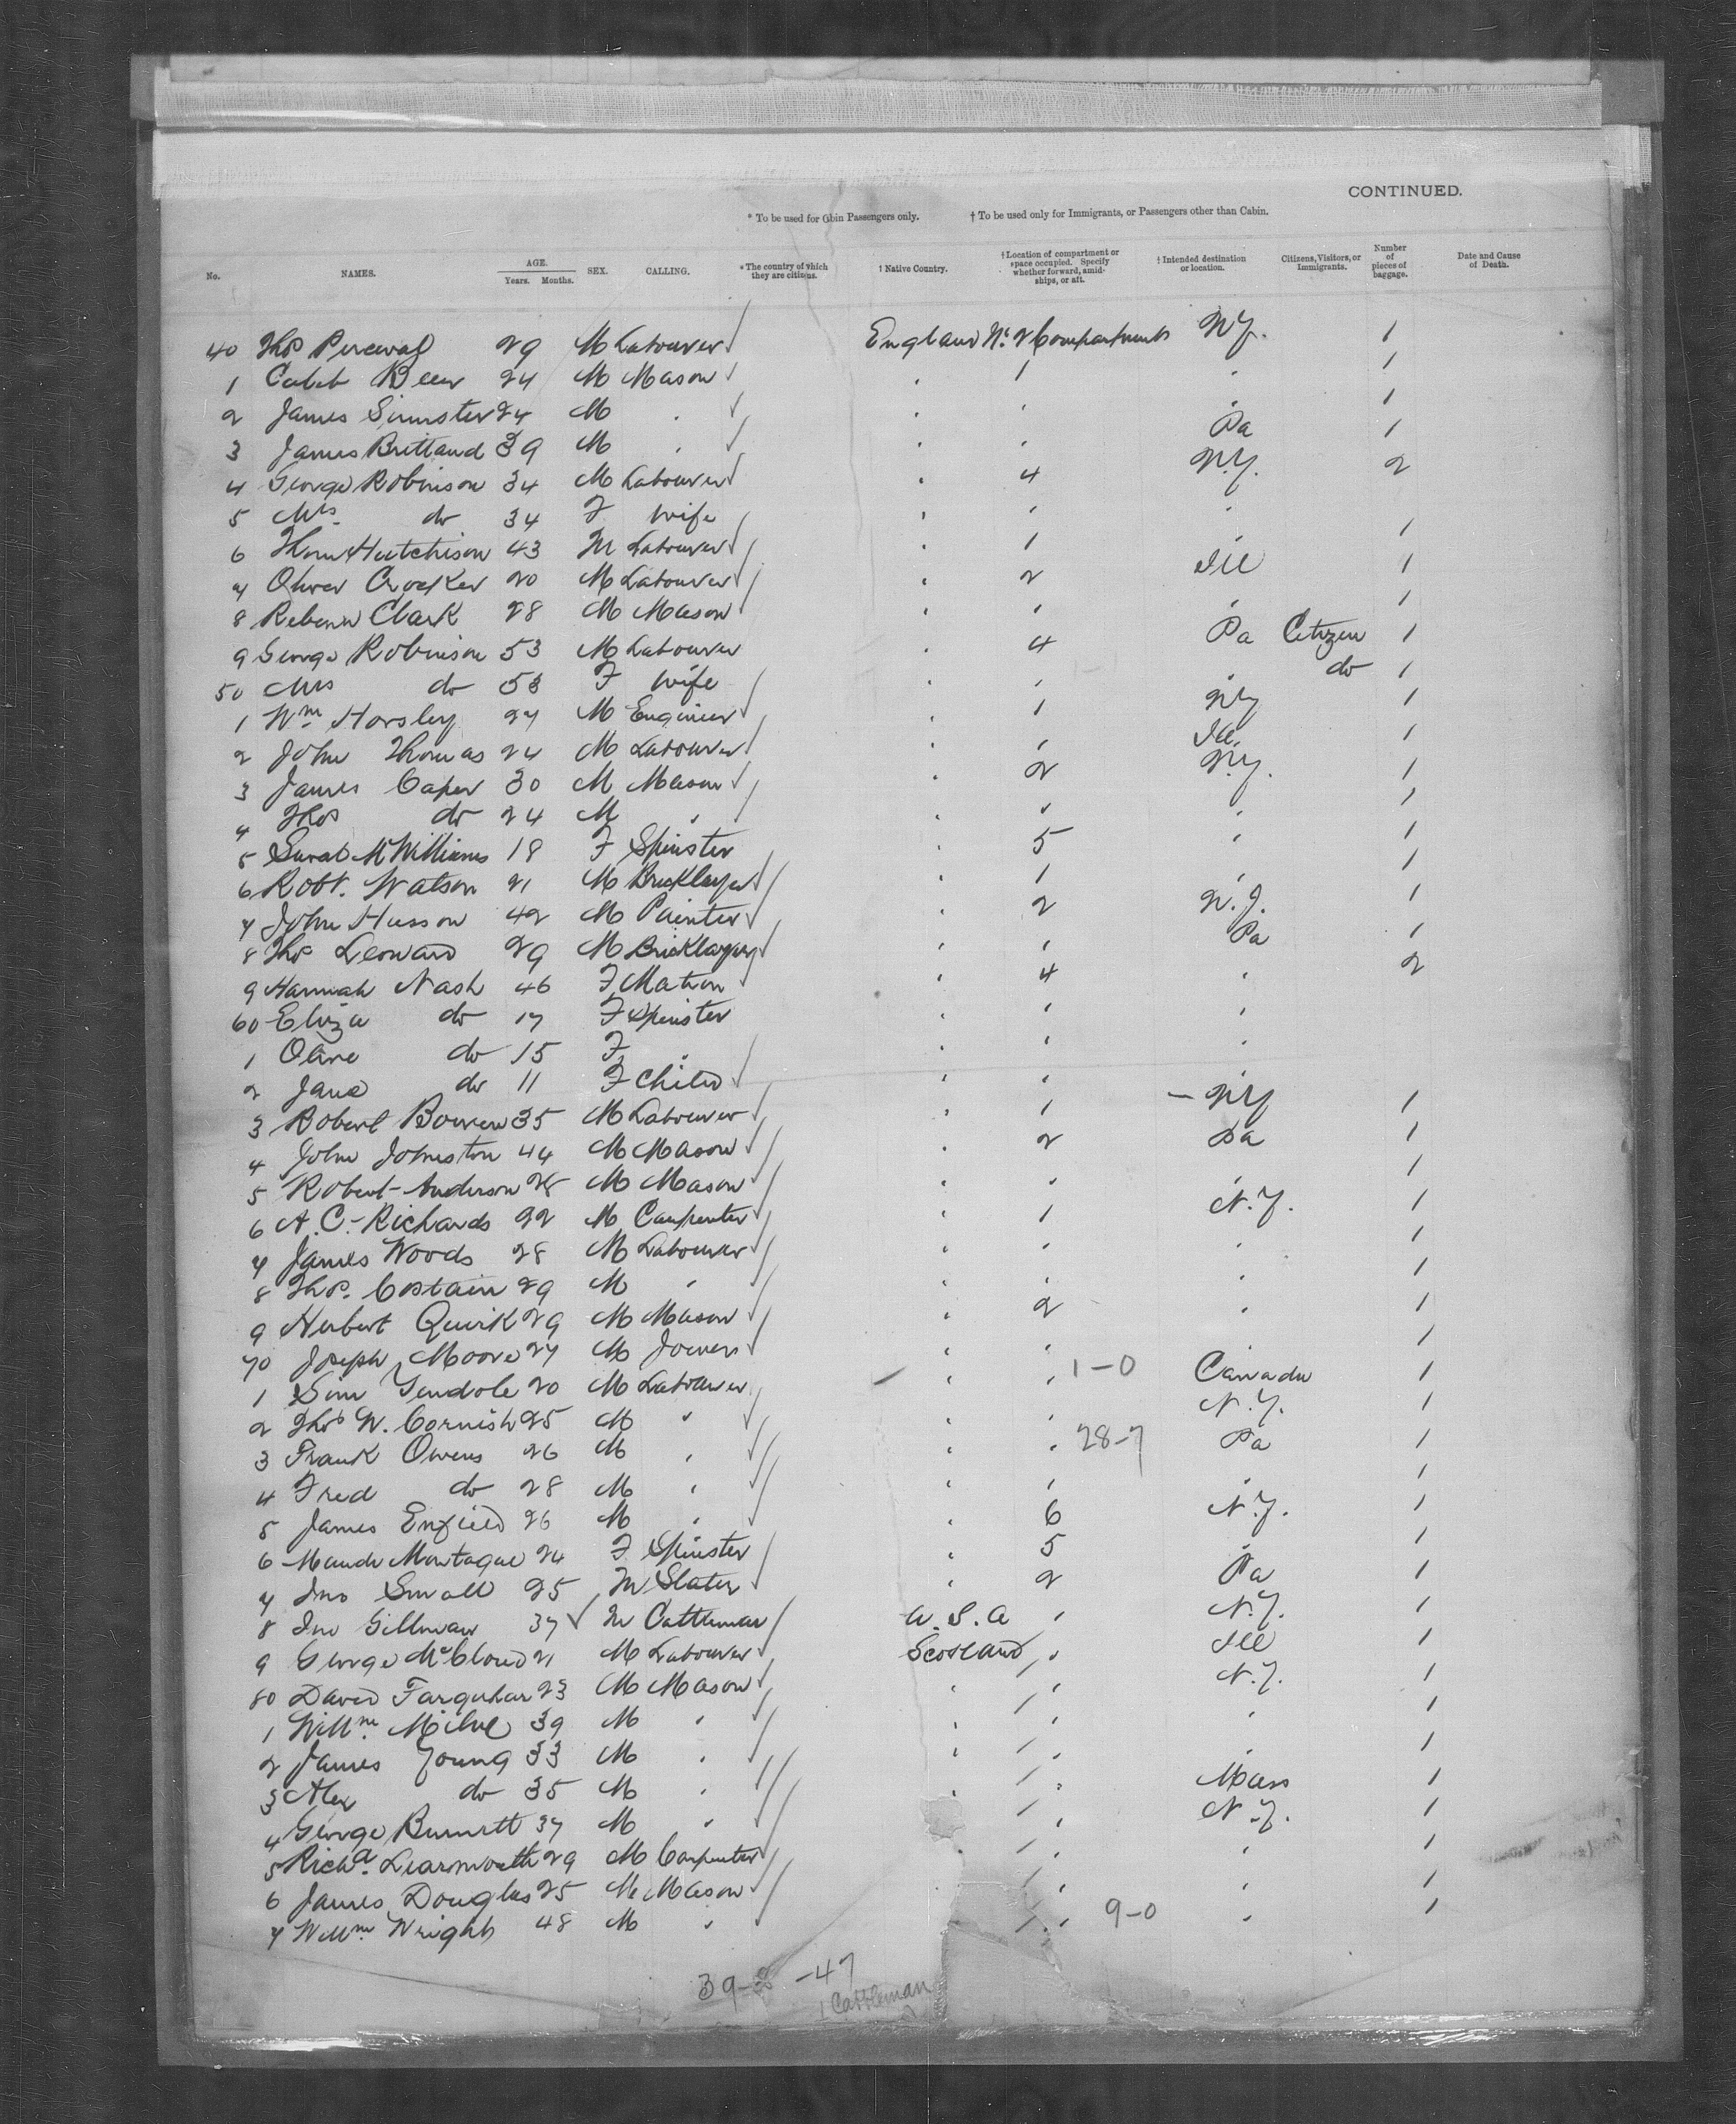 CONTINUED.
* To be used for Cabin Passengers only. † To be used only for Immigrants, or Passengers other than Cabin.
No. NAMES. AGE. Years. Months. SEX. CALLING. *The country of which they are citizens. † Native Country. †Location of compartment or space occupied. Specify whether forward, amidships, or aft. † Intended destination or location. Citizens, Visitors, or Immigrants. Number of pieces of baggage. Date and Cause of Death.
40 Thos Perceval 29 M Labourer England No. 2 Compartment NY. 1
1 Caleb Beer 24 M Mason " 1 " 1
2 James Simister 24 M " " " " 1
3 James Brittand 39 M " " " Pa 1
4 George Robinson 34 M Labourer " 4 N.Y. 2
5 Mrs do 34 F Wife " " "
6 Thom Hutchison 43 M Labourer " 1 1
7 Oliver Crocker 20 M Labourer " 2 Ill 1
8 Clark 28 M Mason " " " 1
9 George Robinson 53 M Labourer " 4 Pa Citizen 1
50 Mrs do 53 F Wife " " " do 1
1 Wm Horsley 27 M Engineer " 1 NY 1
2 John Thomas 24 M Labourer " " Ill. 1
3 James Caper 30 M Mason " 2 N.Y. 1
4 Thos do 24 M " " " " 1
5 Sarah McWilliams 18 F Spinster " 5 " 1
6 Robt. Watson 21 M Bricklayer " 1 " 1
7 John Husson 42 M Painter " 2 N.J. 1
8 Thos Leonard 29 M Bricklayer " " Pa 1
9 Hannah Nash 46 F Matron " 4 " 2
60 Eliza do 17 F Spinster " " "
1 Olive do 15 F " " " "
2 Jane do 11 F Child " " "
3 Robert Bowen 35 M Labourer " 1 – NY 1
4 John Johnston 44 M Mason " 2 Pa 1
5 Robert Anderson 28 M Mason " " " 1
6 A. C. Richards 22 M Carpenter " 1 N.Y. 1
7 James Woods 28 M Labourer " " " 1
8 Thos. Costain 29 M " " " " 1
9 Herbert Quirk 29 M Mason " 2 " 1
70 Joseph Moore 27 M Joiner " " 1
1 Sim Yendole 20 M Labourer " " 1-0 Canada 1
2 Thos W. Cornish 25 M " " " N.Y. 1
3 Frank Owens 26 M " " " 28-7 Pa 1
4 Fred do 28 M " " " " 1
5 James Enfield 26 M " " 6 N.Y. 1
6 Maude Montague 24 F Spinster " 5 1
7 Jno Small 25 M Slater " 2 Pa 1
8 Jno Gillman 37 M Cattleman U.S.A " N.Y. 1
9 George McCloud 21 M Labourer Scotland " Ill 1
80 David Farquhar 23 M Mason " " N.Y. 1
1 Willm Milne 39 M " " " " 1
2 James Young 33 M " " " " 1
3 Alex do 35 M " " " Mass 1
4 George Burnett 37 M " " N.Y. 1
5 Richd. Learmouth 29 M Carpenter " " " 1
6 James Douglas 25 M Mason " " " 1
7 Willm Wright 48 M " " 9-0 " 1
-47
1 Cattleman